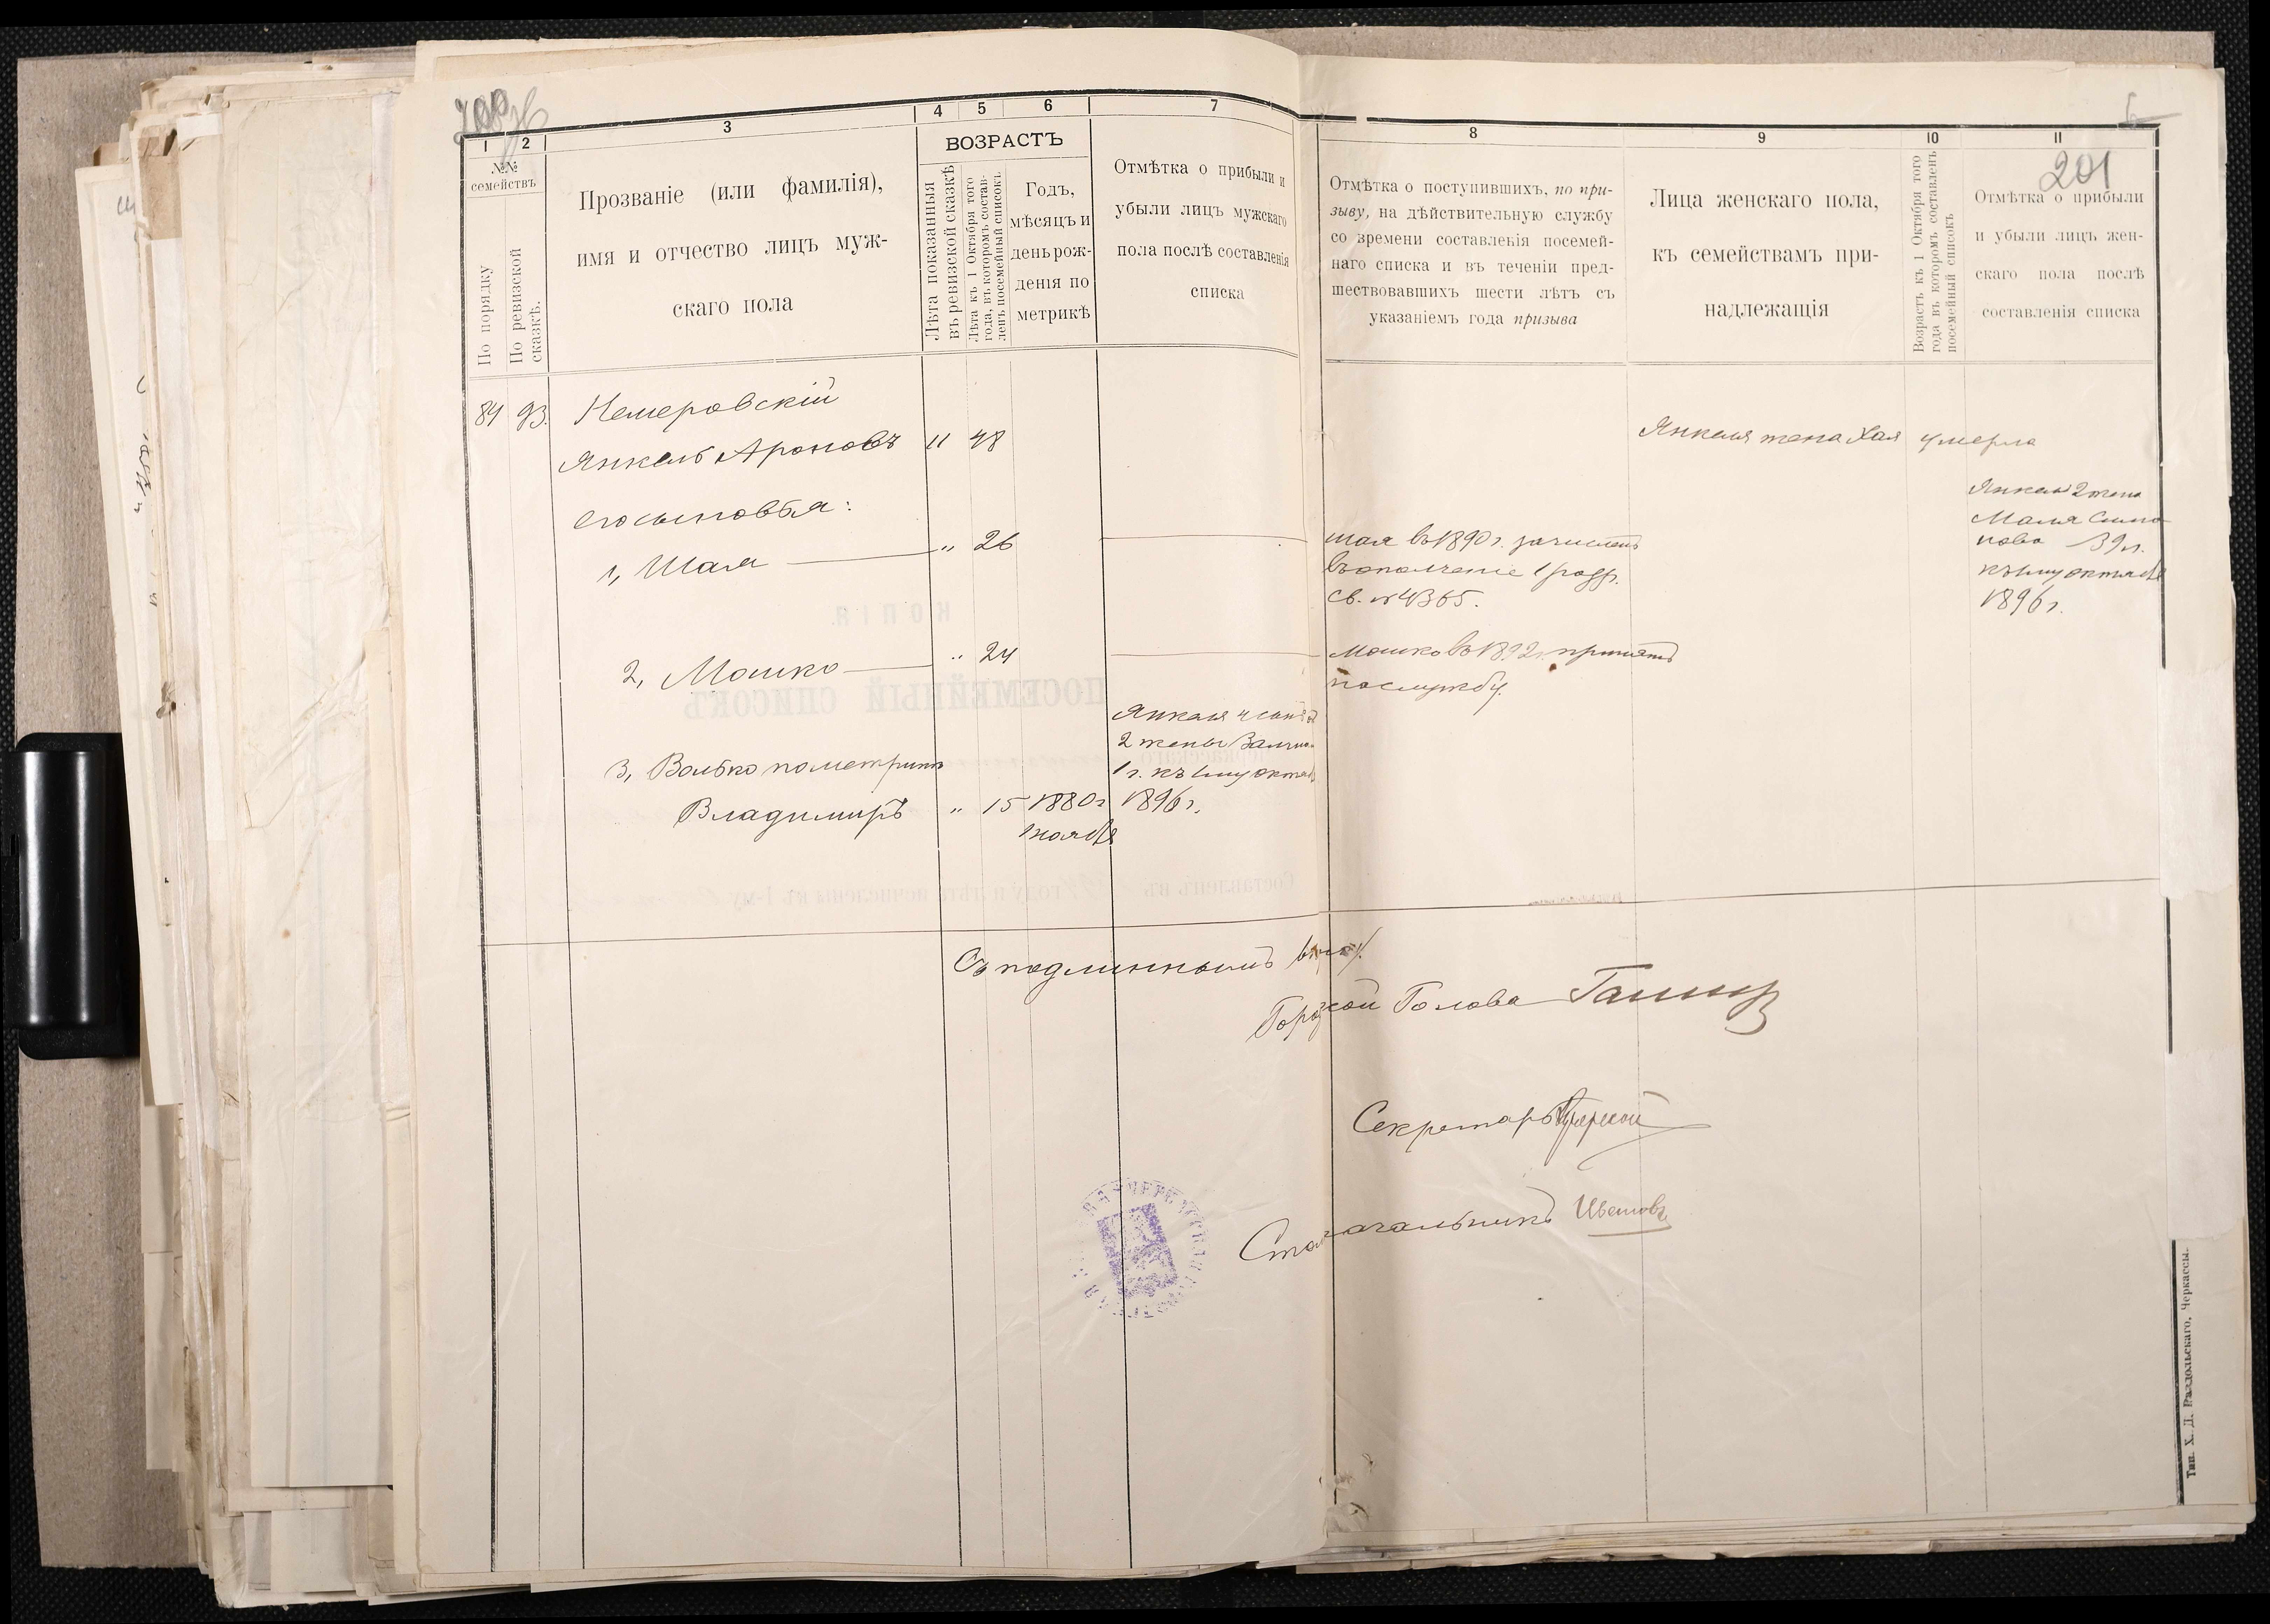 1 2 3 4 5 6 7
№№ семействъ
По порядку
По ревизской сказкѣ.
Прозваніе (или фамилія),
имя и отчество лицъ муж-
скаго пола
ВОЗРАСТЪ
Лѣта показанныя
въ ревизской сказкѣ
Лѣта къ 1 Октября того
года, въ которомъ состав-
ленъ посемейный списокъ
Годъ,
мѣсяцъ и
день рож-
денія по
метрикѣ
Отмѣтка о прибыли и
убыли лицъ мужскаго
пола послѣ составленія
списка
84 93. Немеровскій
Янкель Ароновъ 11 48
его сыновья:
1, Шая " 26
2, Мошко " 24
Янкеля 4 сынъ отъ
2 жены
1 г. къ 1му октяб
3, Волько по метрикѣ
Владимиръ " 15 1880 г 1896 г.
ноября
8 9 10 11
6
201
Отмѣтка о поступившихъ, по при-
зыву, на дѣйствительную службу
со времени составленія посемей-
наго списка и въ теченіи пред-
шествовавшихъ шести лѣтъ съ
указаніемъ года призыва
Лица женскаго пола,
къ семействамъ при-
надлежащія
Возрастъ къ 1 Октября того
года въ которомъ составленъ
посемейный списокъ
Отмѣтка о прибыли
и убыли лицъ жен-
скаго пола послѣ
составленія списка
Янкеля жена Хая умерла
Янкеля 2 жена
Маля Симо-
нова 39 л.
къ 1му октября
1896 г.
Шая въ 1890 г. зачисленъ
въ ополченіе 1 разр.
св. № 4365.
Мошко въ 1892 г. принятъ
на службу.
Съ подлиннымъ вѣрно:
Городской Голова
Секретарь
Столоначальникъ Цвѣтовъ
Тип. Х. Д. Раздольскаго, Черкассы.